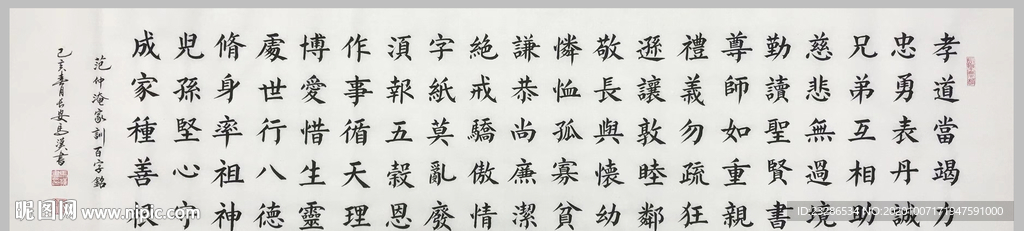 孝道當竭力
忠勇表丹誠
兄弟互相助
慈悲無過境
勤讀聖賢書
尊師如重親
禮義勿疏狂
遜讓敦睦鄰
敬長與懷幼
憐恤孤寡貧
謙恭尚廉潔
絕戒驕傲情
字紙莫亂廢
須報五穀恩
作事循天理
博愛惜生靈
處世行八德
脩身率祖神
兒孫堅心守
成家種善根
范仲淹家訓百字銘
己亥春月長安
昵图网 www.nipic.com
ID:23286534 NO:20201007171947591000